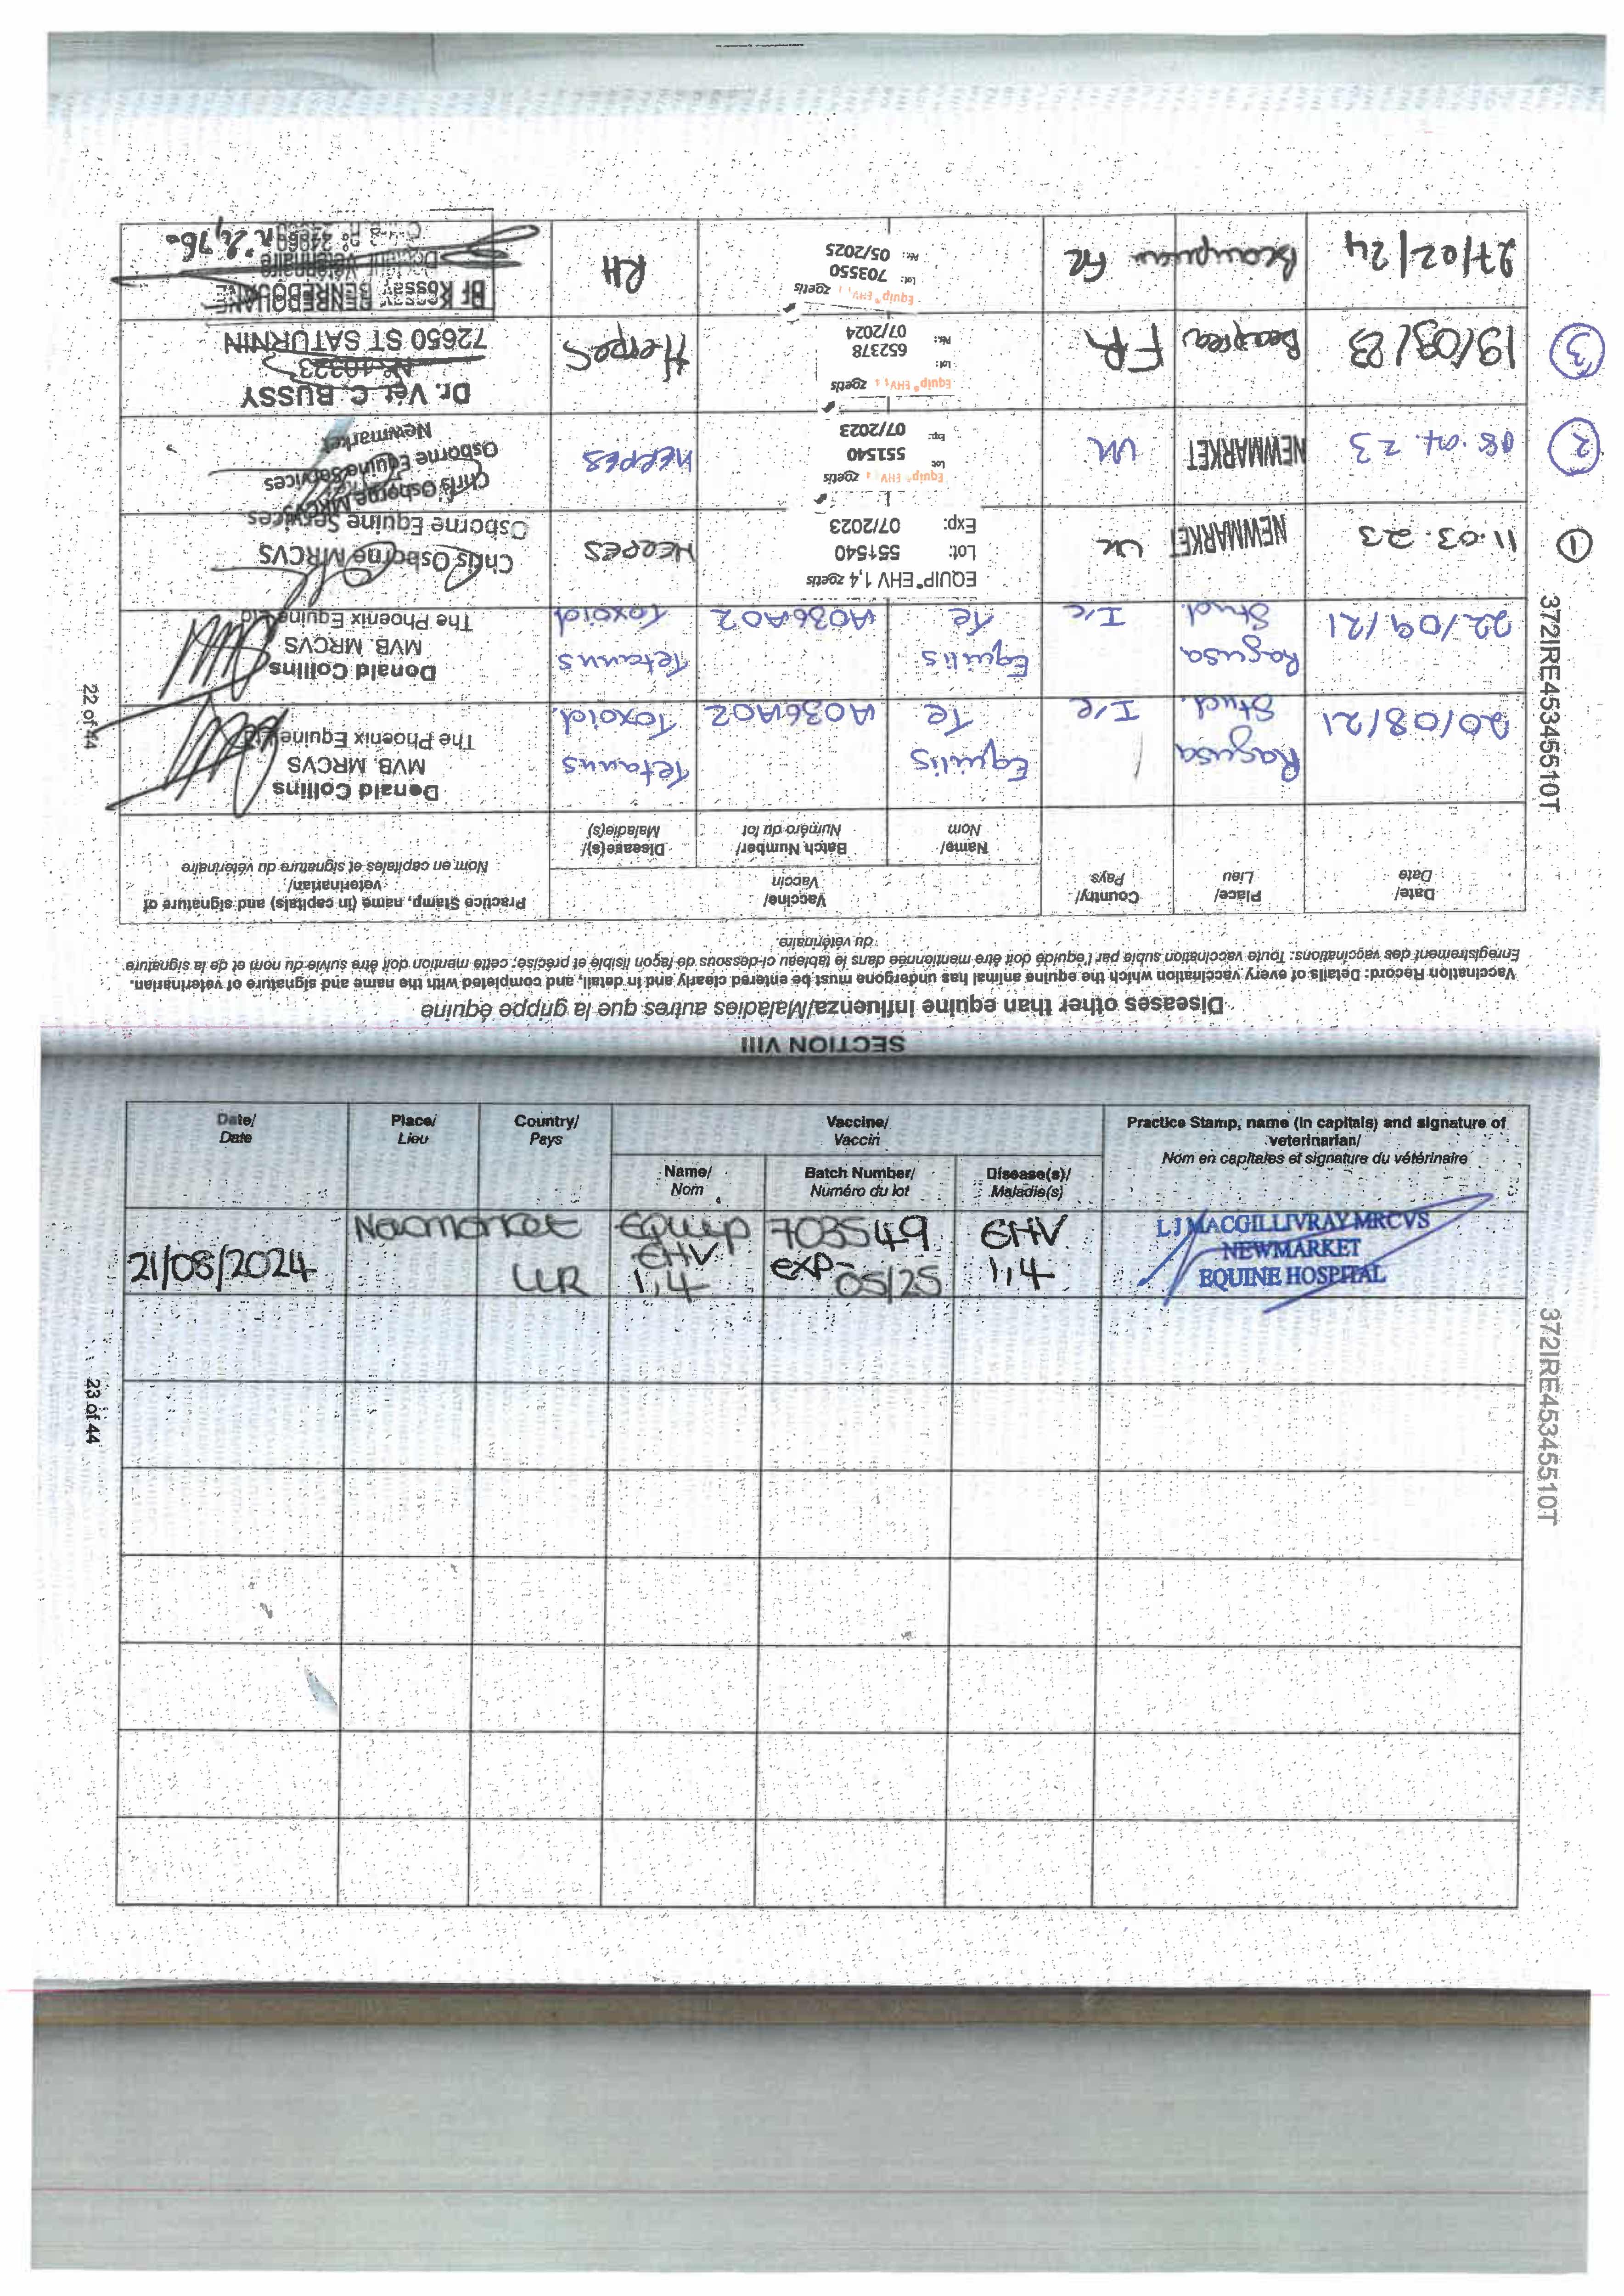 SECTION VIII
Diseases other than equine influenza/Maladies autres que la grippe équine
Vaccination Record: Details of every vaccination which the equine animal has undergone must be entered clearly and in detail, and completed with the name and signature of veterinarian.
Enregistrement des vaccinations: Toute vaccination subie par l'équidé doit être mentionnée dans le tableau ci-dessous de façon lisible et précise; cette mention doit être suivie du nom et de la signature
du vétérinaire.
Date/
Date
Place/
Lieu
Country/
Pays
Vaccine/
Vaccin
Name/
Nom
Batch Number/
Numéro du lot
Disease(s)/
Maladie(s)
Practice Stamp, name (in capitals) and signature of
veterinarian/
Nom en capitales et signature du vétérinaire
20/08/21
Ragusa
Stud.
I/e
Equilis
Te
A036A02
Tetanus
Toxoid.
Donald Collins
MVB. MRCVS
The Phoenix Equine
22/09/21
Ragusa
Stud.
I/e
Equilis
Te
A036A02
Tetanus
Toxoid
Donald Collins
MVB. MRCVS
The Phoenix Equine
1
11.03.23
NEWMARKET
UK
EQUIP® EHV 1,4 zoetis
Lot: 551540
Exp: 07/2023
HERPES
Chris Osborne MRCVS
Osborne Equine Services
2
08.04.23
NEWMARKET
UK
Equip® EHV zoetis
Lot: 551540
Exp: 07/2023
HERPES
Chris Osborne MRCVS
Osborne Equine Services
Newmarket
3
19/09/23
FR
Equip® EHV zoetis
Lot: 652378
07/2024
Herpes
Dr. Vét C. BUSSY
72650 ST SATURNIN
27/02/24
Equip® EHV zoetis
Lot: 703550
05/2025
RH
Docteur Vétérinaire
372IRE45345510T
22 of 44
Date/
Date
Place/
Lieu
Country/
Pays
Vaccine/
Vaccin
Name/
Nom
Batch Number/
Numéro du lot
Disease(s)/
Maladie(s)
Practice Stamp, name (in capitals) and signature of
veterinarian/
Nom en capitales et signature du vétérinaire
21/08/2024
Newmarket
Equip
EHV
1,4
703549
exp-
05/25
EHV
1,4
LJ MACGILLIVRAY MRCVS
NEWMARKET
EQUINE HOSPITAL
372IRE45345510T
23 of 44